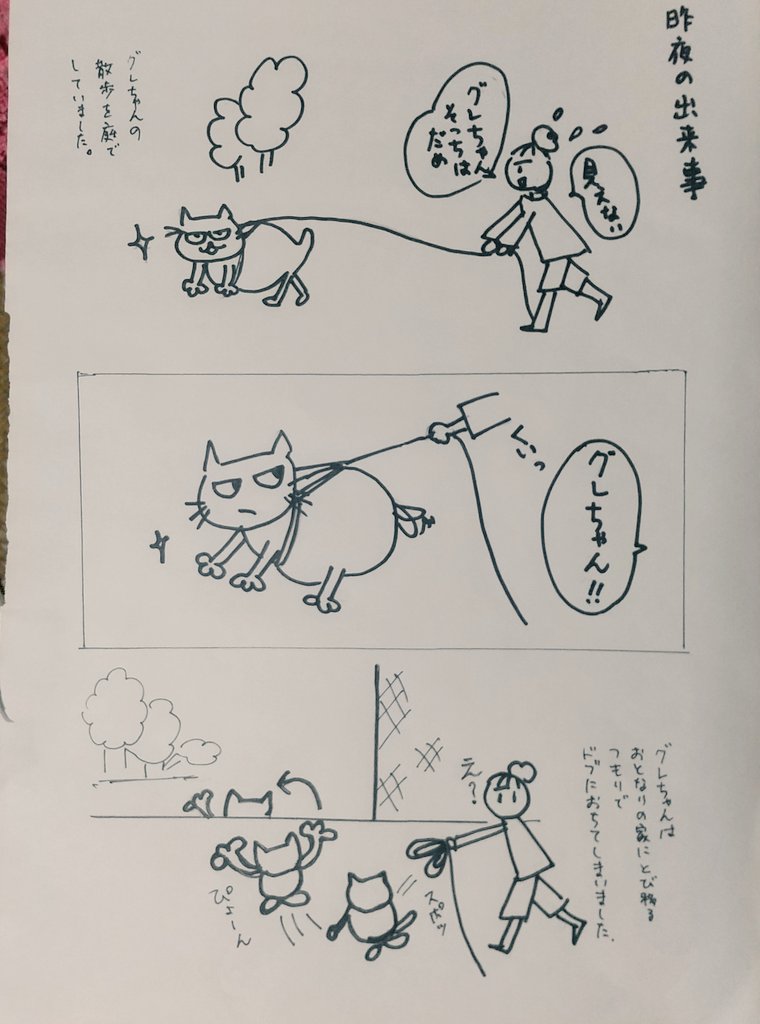 昨夜の出来事
見えない
グレちゃん
そっちは
だめ
グレちゃんの
散歩を庭で
していました。
グレちゃん!!
ぐいっ
グレちゃんは
おとなりの家にとび移る
つもりで
ドブにおちてしまいました.
え?
スポッ
ぴょーん